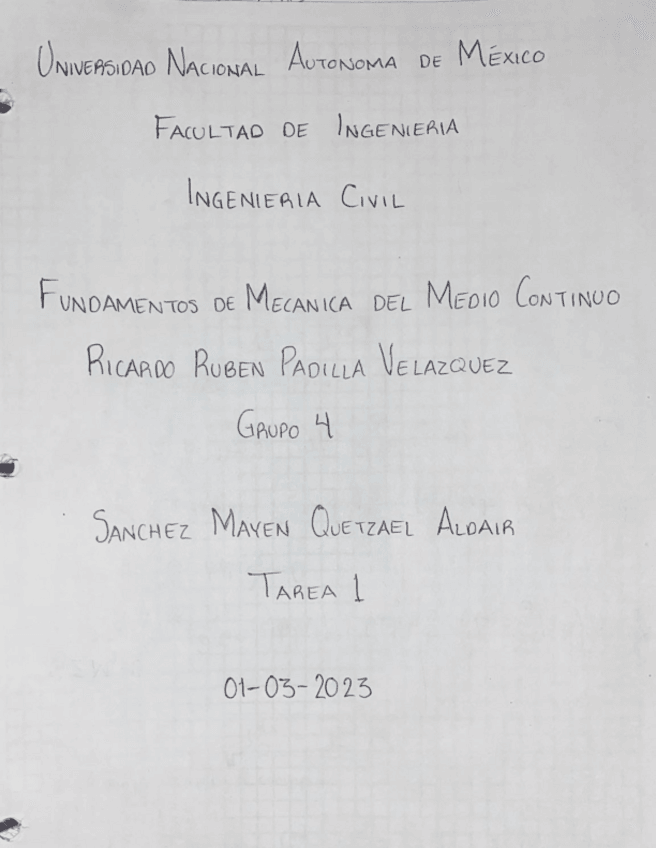 UNIVERSIDAD NACIONAL AUTONOMA DE MÉXICO
FACULTAD DE INGENIERIA
INGENIERIA CIVIL
FUNDAMENTOS DE MECANICA DEL MEDIO CONTINUO
RICARDO RUBEN PADILLA VELAZQUEZ
GRUPO 4
SANCHEZ MAYEN QUETZAEL ALDAIR
TAREA 1
01-03-2023